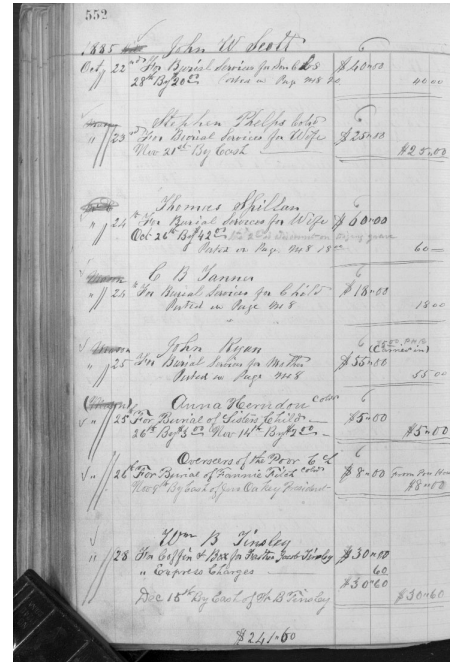 552
1885 John W Scott
Oct 22nd For Burial Services for $40.00
28th By $20.00 Posted on Page 40 00
Stephen Phelps Cold
" 23rd For Burial Services for Wife $25.00
Nov 21st By Cash $25.00
Thomas
" 24th For Burial Services for Wife $60.00
Oct 26th By $42.00
Posted on Page 60 —
C B Tanner
" 24th For Burial Services for Child $18.00
Posted on Page 18 00
John Ryan
" 25 For Burial Services for Mother $55.00 (Carried in)
Posted on Page 55 00
Anna Herndon Cold
" 25th For Burial of Sisters Child $5.00
26th By $3.00 Nov 14th By $2.00 $5.00
Overseers of the Poor
" 26th For Burial of Fannie Fields Cold $8.00 From
Nov By Cash of President $8.00
Wm B Tinsley
" 28 For Coffin & Box for Father Tinsley $30.00
" Express Charges 60
$30.60
Dec 15th By Cash of B Tinsley $30.60
$241.60